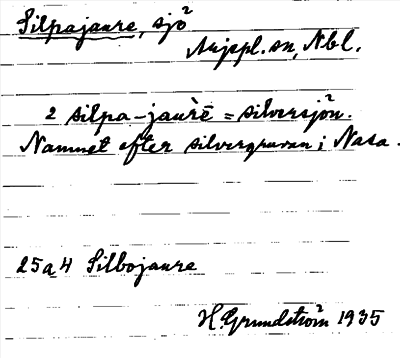 Silpajaure, sjö
Arjepl. sn, Nbl.
2 silpa-jaùrē = silversjön.
Namnet efter silvergruvan i Nasa.
25a4 Silbojaure
H. Grundström 1935